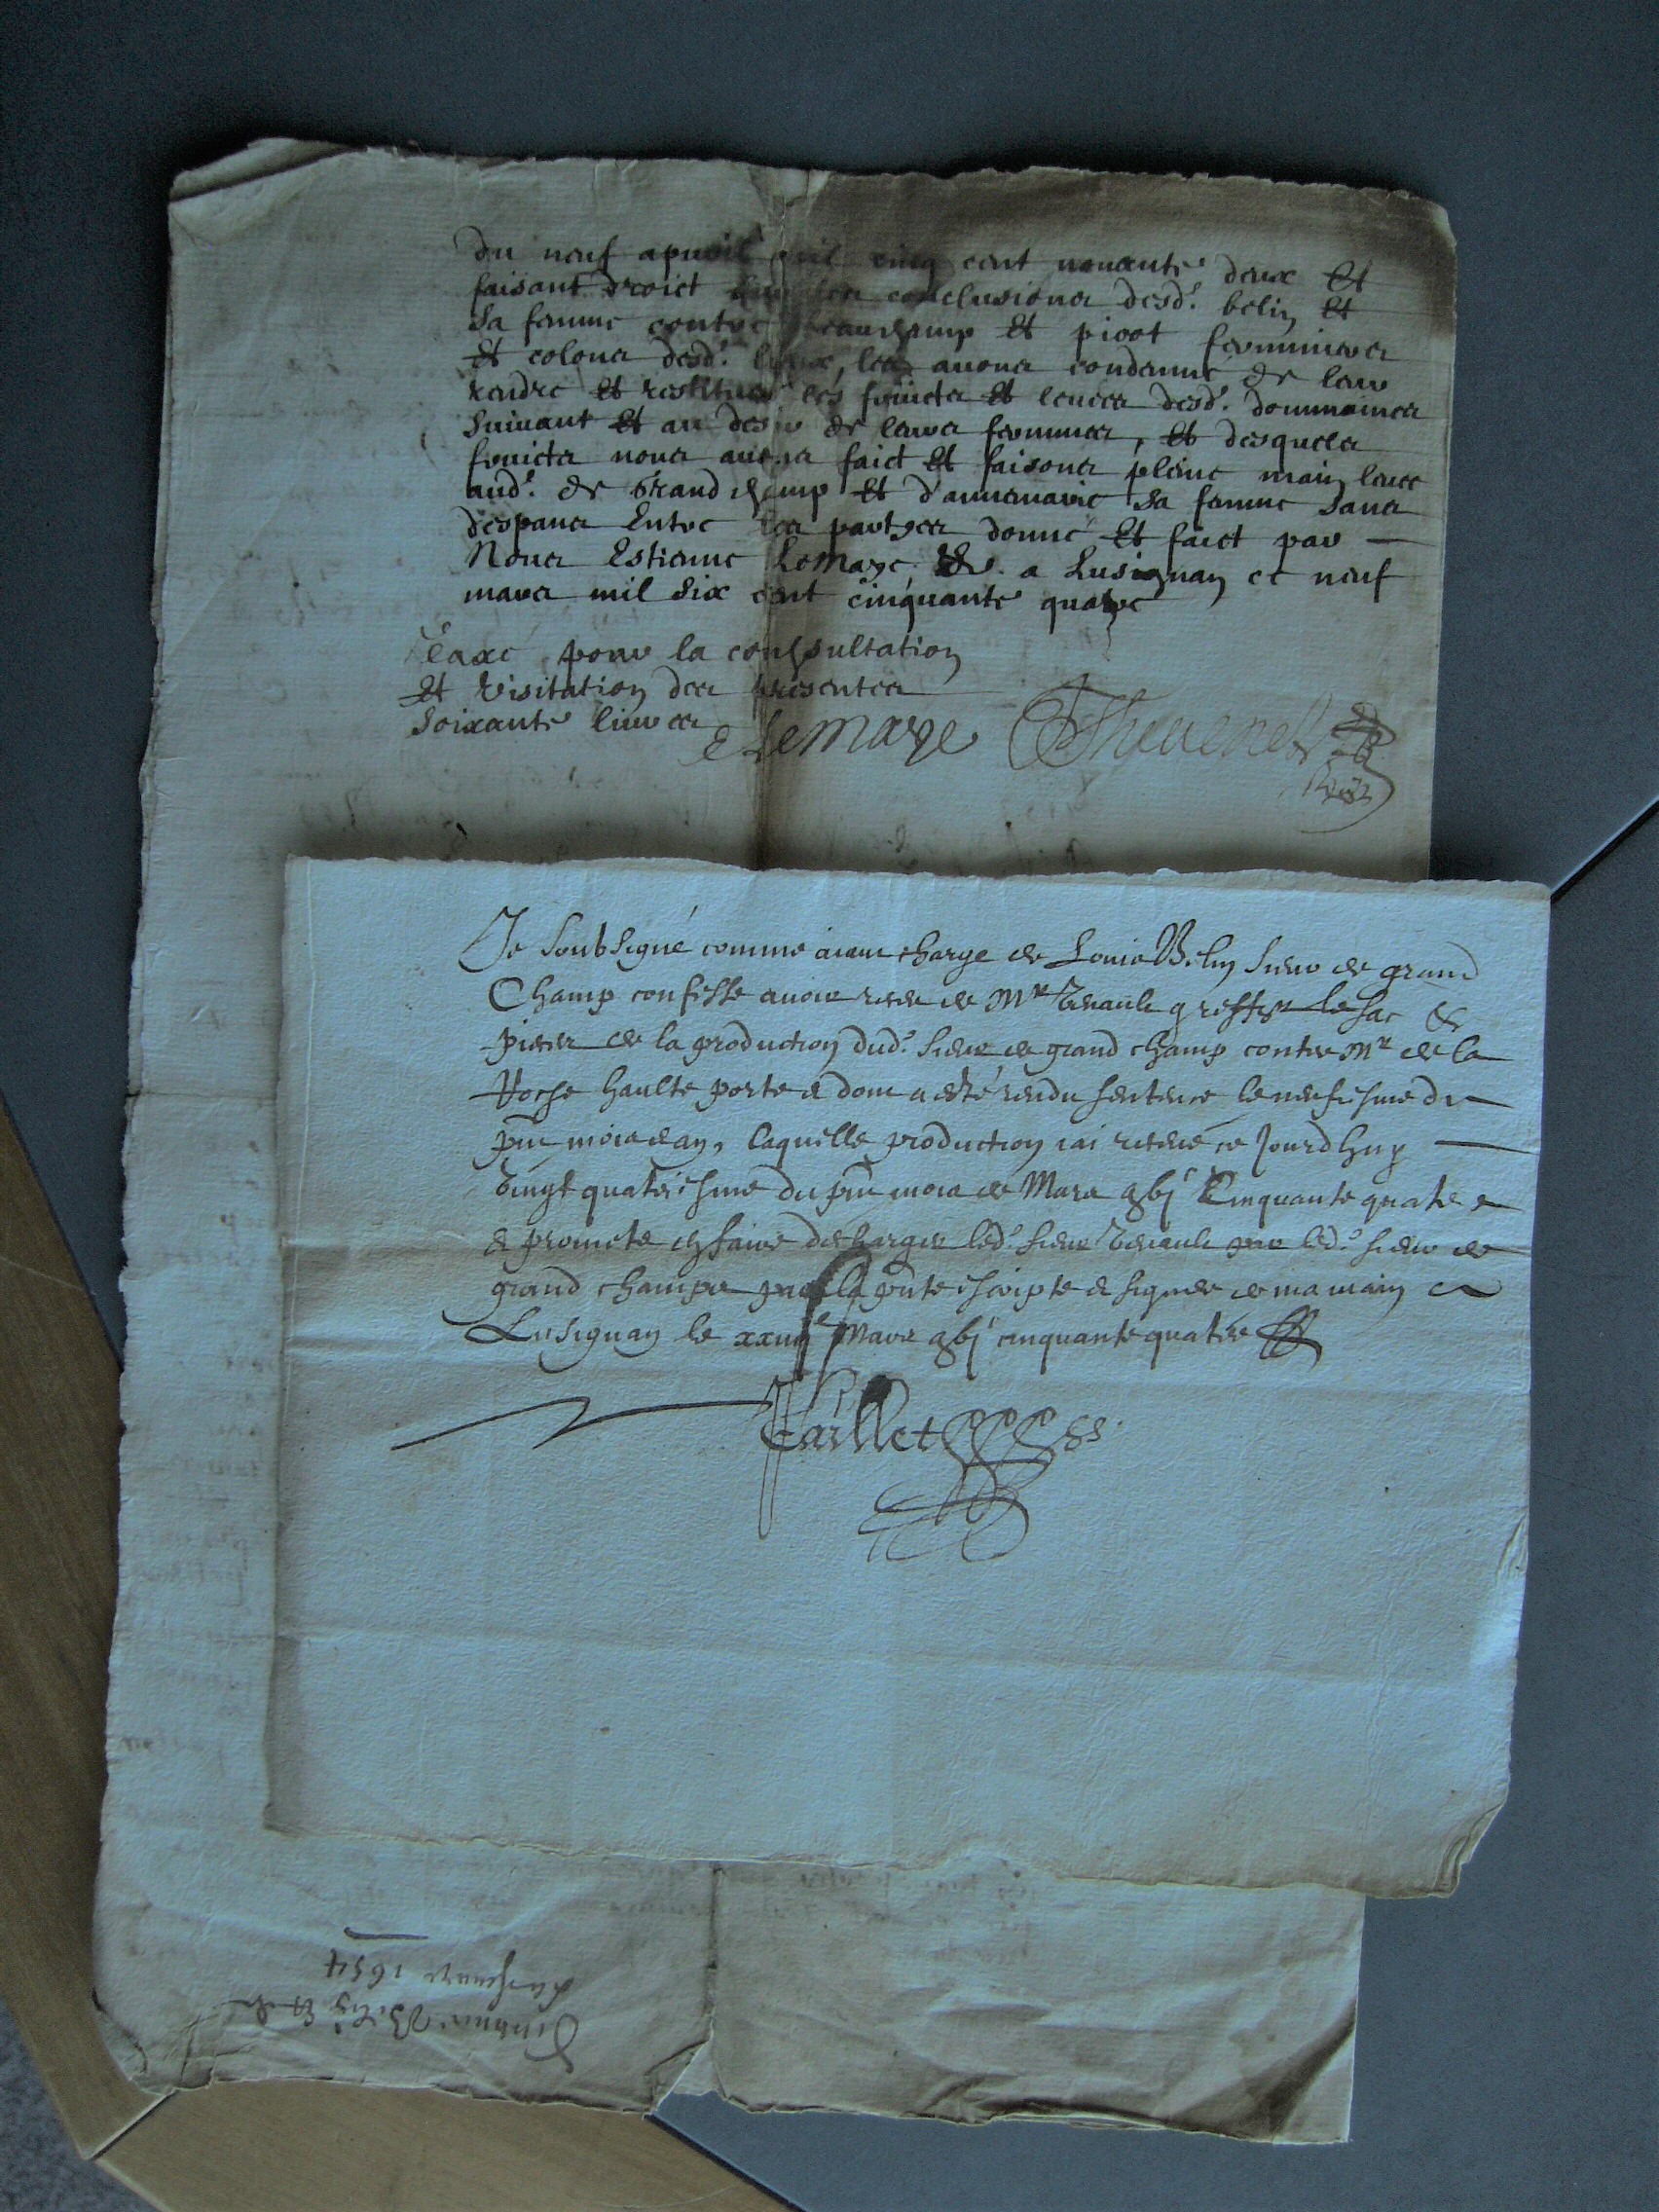 du neuf apvril mil cinq cent nonante deux Et
faisant droict sur les conclusions desd. belin Et
sa femme contre beauchamp Et picot fermmiers
Et colons desd. lieux, les avons condemné de leur
rendre Et restituer les fruicts Et levées desd. dommaines
suivant Et au desir de leurs fermmes, Et desquels
fruicts nous avons faict Et faisons pleine main levée
aud. de Grandchamp Et d'annemarie sa femme sans
despans Entre les partyes donné Et faict par
Nous Estienne LeMaye a Lusignan ce neuf
mars mil six cent cinquante quatre
Taxé pour la consultation
Et visitation des presentes
soixante livres
E LeMaye Thevenet
Je soubsigné comme aiant charge de Louis Belin sieur de grand
Champ confesse avoir retiré de Mr greffier le sac &
pieces de la production dud. sieur de grand champ contre Mr de la
Roche haulte porte & dont a esté rendu sentence le neufiesme du
pnt mois & an, laquelle production iai retiré ce Jourdhuy
vingt quatriesme du pnt mois de Mars gbj Cinquante quatre &
& promets en faire descharger led. sieur par led. sieur de
grand champs par la pnte escripte & signée de ma main a
Lusignan le xxiiije Mars gbj cinquante quatre
Paillet
Belin &
1654